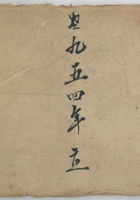 壹九五四年立